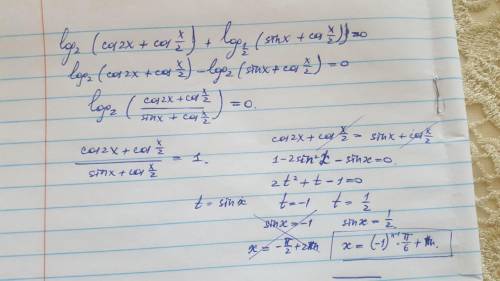 log₂(cos2x + cos x/2) + log_{1/2}(sinx + cos x/2) = 0
log₂(cos2x + cos x/2) - log₂(sinx + cos x/2) = 0
log₂((cos2x + cos x/2)/(sinx + cos x/2)) = 0.
(cos2x + cos x/2)/(sinx + cos x/2) = 1.
cos2x + cos x/2 = sinx + cos x/2
1 - 2sin²x - sinx = 0.
2t² + t - 1 = 0
t = sinx t = -1 t = 1/2
sinx = -1 sinx = 1/2
x = -π/2 + 2πn x = (-1)ⁿ · π/6 + πn.